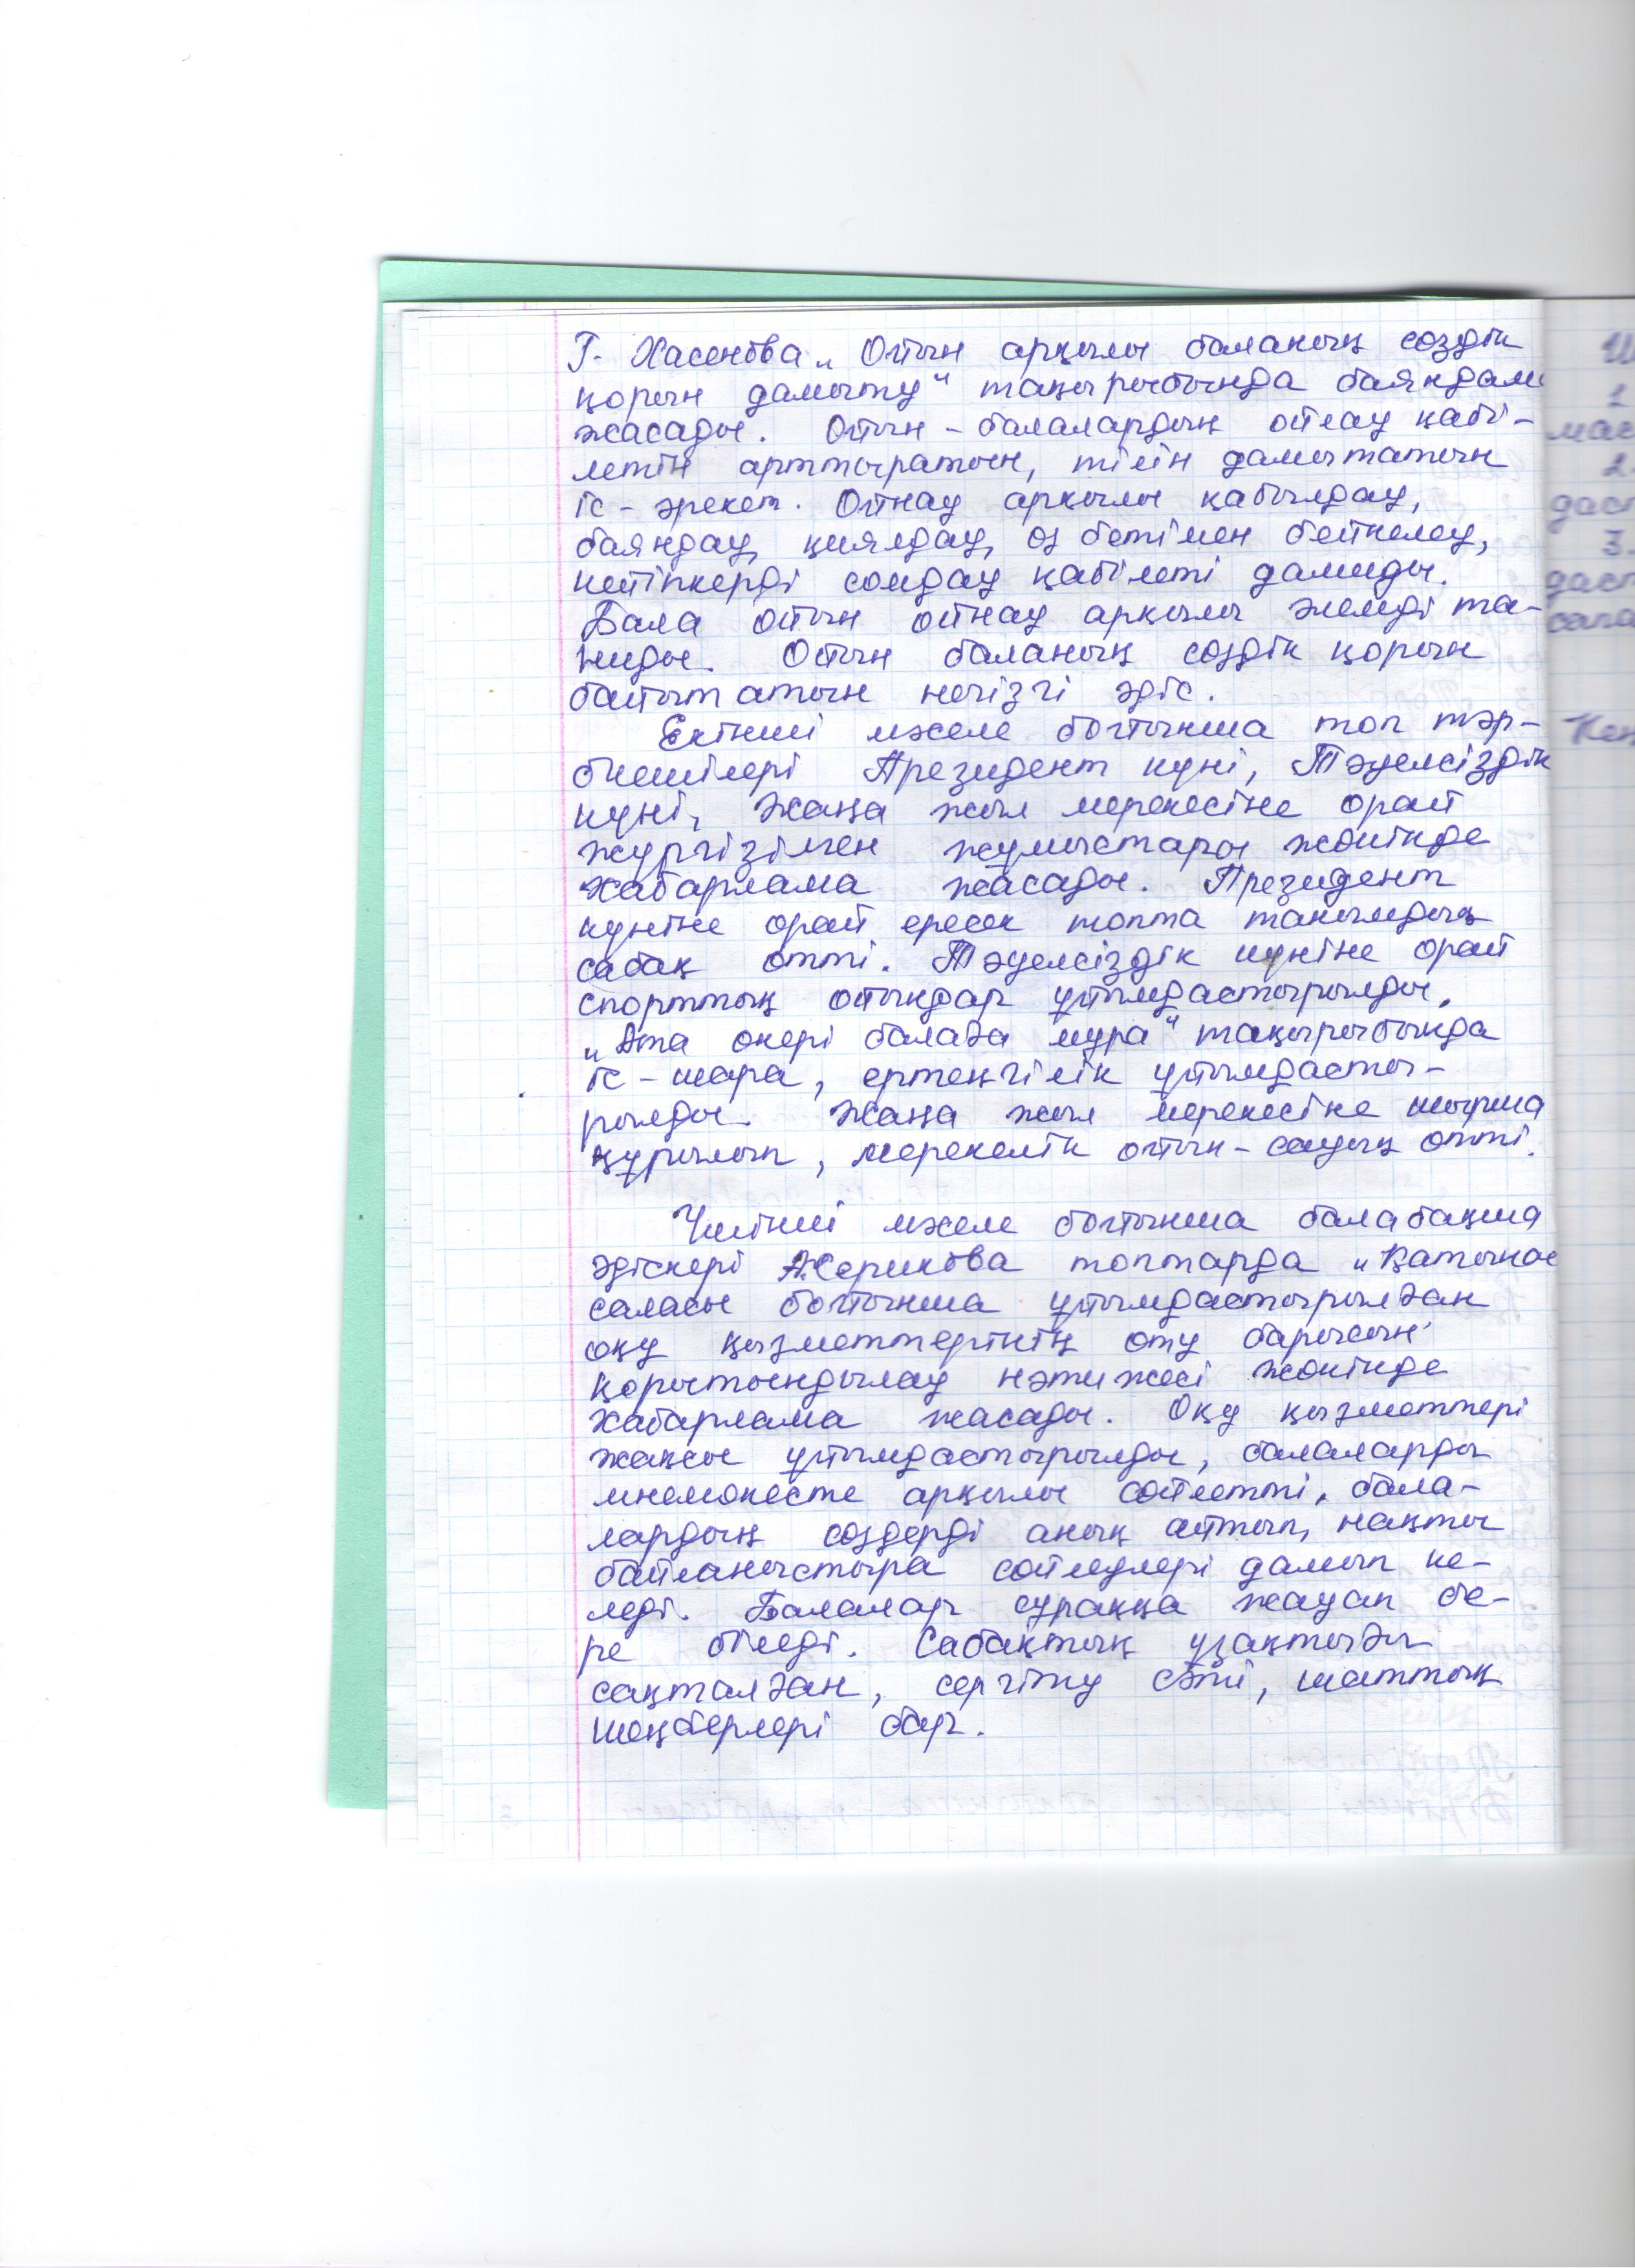 Г. Хасенова „Ойын арқылы баланың сөздік
қорын дамыту" тақырыбында баяндама
жасады. Ойын - балалардың ойлау қабі-
летін арттыратын, тілін дамытатын
іс - әрекет. Ойнау арқылы қабылдау,
баяндау, қиялдау, өз бетімен бейнелеу,
кейіпкерді сомдау қабілеті дамиды.
Бала ойын ойнау арқылы әлемді та-
ниды. Ойын баланың сөздік қорын
байытатын негізгі әдіс.
Екінші мәселе бойынша топ тәр-
биешілері Президент күні, Тәуелсіздік
күні, Жаңа жыл мерекесіне орай
жүргізілген жұмыстары жөнінде
хабарлама жасады. Президент
күніне орай ересек топта танымдық
сабақ өтті. Тәуелсіздік күніне орай
спорттық ойындар ұйымдастырылды.
„Ата өнері балаға мұра" тақырыбында
іс - шара, ертеңгілік ұйымдасты-
рылды. Жаңа жыл мерекесіне шырша
құрылып, мерекелік ойын - сауық өтті.
Үшінші мәселе бойынша балабақша
әдіскері А.Серикова топтарда „Қатынас
саласы бойынша ұйымдастырылған
оқу қызметтерінің өту барысын"
қорытындылау нәтижесі жөнінде
хабарлама жасады. Оқу қызметтері
жақсы ұйымдастырылды, балаларды
мнемокесте арқылы сөйлетті, бала-
лардың сөздерді анық айтып, нақты
байланыстыра сөйлеулері дамып ке-
леді. Балалар сұраққа жауап бе-
ре біледі. Сабақтың ұзақтығы
сақталған, сергіту сәті, шаттық
шеңберлері бар.
1
2.
3.